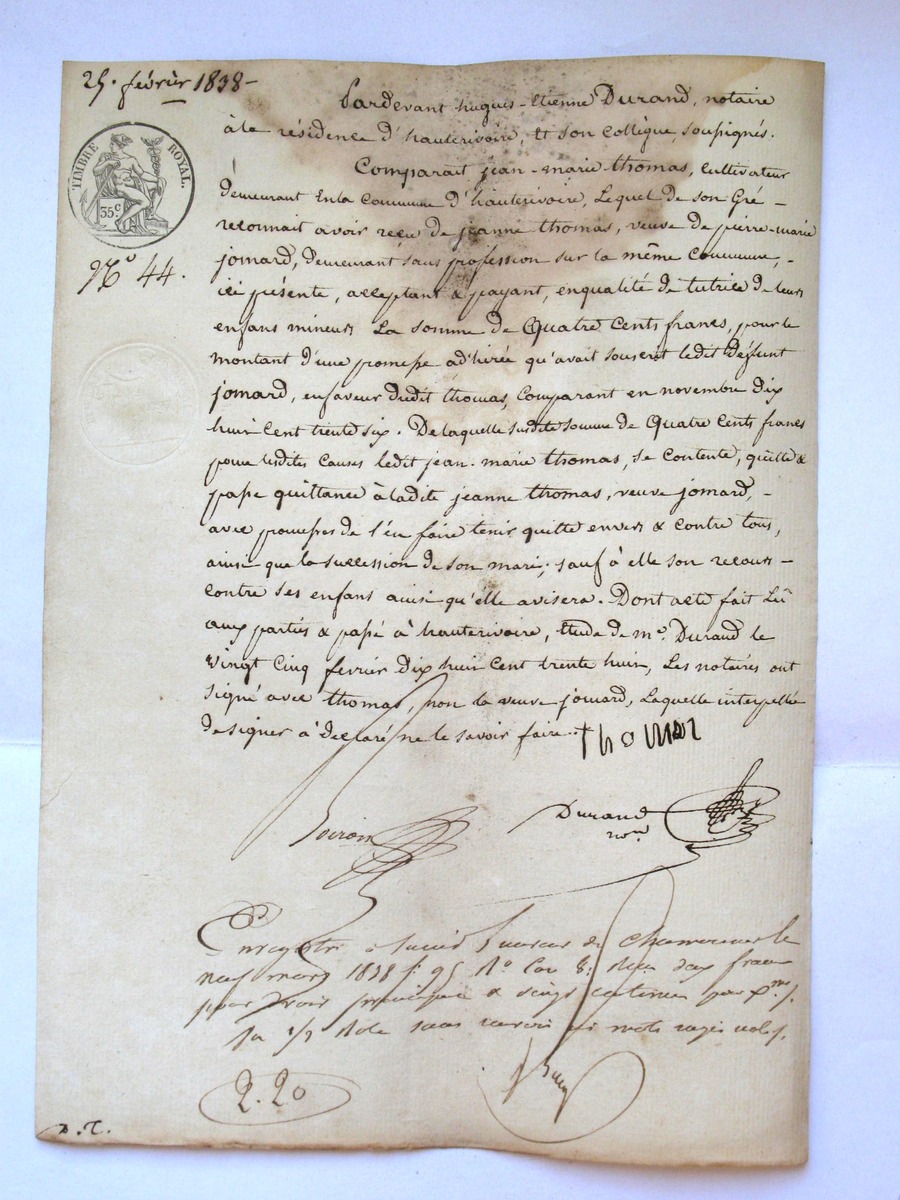 25. février 1838 -
TIMBRE ROYAL.
35 c
N° 44.
Pardevant hugues-Etienne Durand, notaire
à la résidence d'hauterivoire, Et son collègue, soussignés.
Comparait jean-marie thomas, cultivateur
demeurant En la Commune d'hauterivoire, Lequel de son Gré -
reconnait avoir reçu de jeanne thomas, veuve de pierre-marie
jomard, demeurant sans profession sur la même Commune, -
ici présente, acceptant & payant, en qualité de tutrice de leurs
enfans mineurs La somme de Quatre Cents francs, pour le
montant d'une promesse adhirée qu'avait souscrit ledit deffunt
jomard, en faveur dudit thomas, Comparant en novembre dix
huit Cent trente six. De laquelle susdite somme de Quatre Cents francs
pour lesdites Causes ledit jean-marie thomas, se Contente, quitte &
passe quittance à ladite jeanne thomas, veuve jomard, -
avec promesse de l'en faire tenir quitte envers & contre tous,
ainsi que la succession de son mari; sauf à elle son recours -
contre ses enfans ainsi qu'elle avisera. Dont acte fait Lu
aux parties & passé à hauterivoire, Etude de me. Durand le
vingt cinq fevrier dix huit cent trente huit, Les notaires ont
signé avec thomas, non la veuve jomard, Laquelle interpellée
de signer à déclaré ne le savoir faire.
thomas
Durand
nore
Enregistré à
neuf mars 1838 f. 95 Ro Cas 8: deux francs
pour droit principal & vingt centimes par Xme
La 1/2 sans renvoi ni mots rayés nuls.
2.20
D.T.